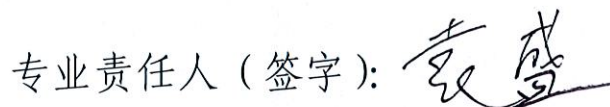 专业责任人（签字）：袁盛